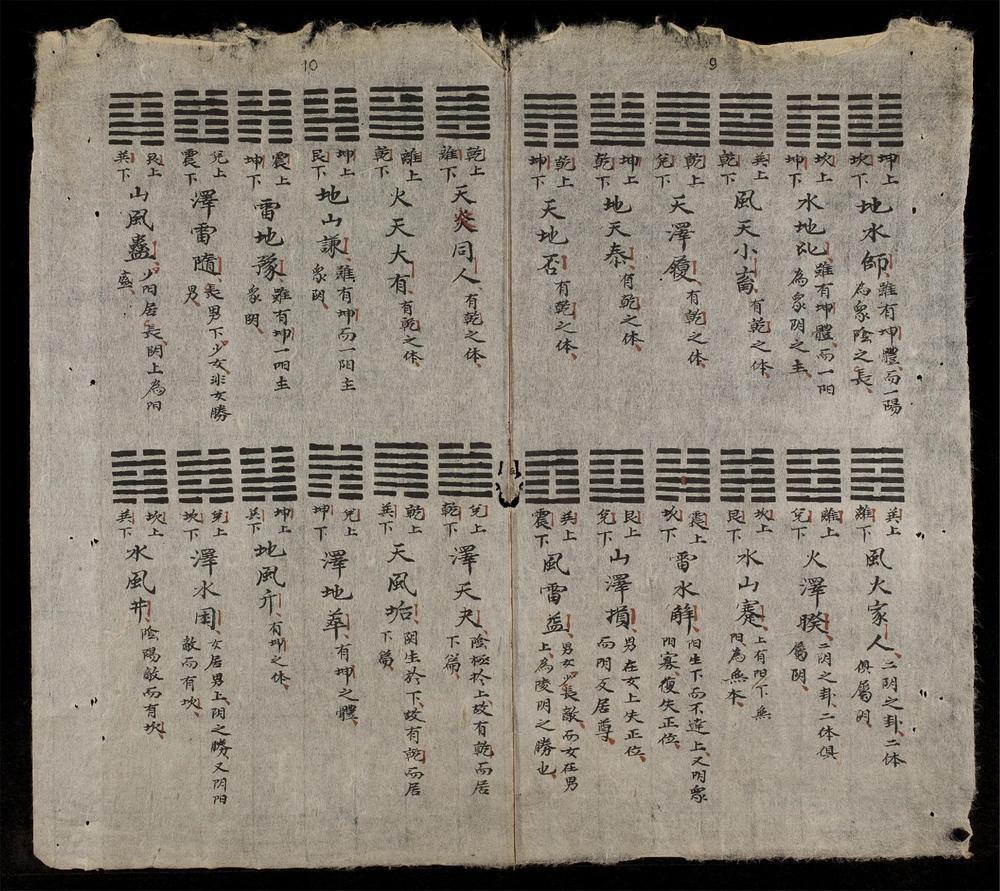 9
坤上
坎下
地水師
雖有坤體、而一陽
為衆陰之長、
坎上
坤下
水地比
雖有坤體、而一阳
為衆阴之主、
巽上
乾下
風天小畜
有乾之体、
乾上
兌下
天澤履
有乾之体、
坤上
乾下
地天泰
有乾之体、
乾上
坤下
天地否
有乾之体、
巽上
離下
風火家人
二阴之卦、二体
俱屬阴、
離上
兌下
火澤睽
二阴之卦、二体俱
屬阴、
坎上
艮下
水山蹇
上有阳下無
阳為無本、
震上
坎下
雷水解
阳生下而不達上、又阴衆
阳寡、復失正位、
艮上
兌下
山澤損
男在女上失正位、
而阴反居尊、
巽上
震下
風雷益
男女少長敵、而女在男
上、為陵阴之勝也、
10
乾上
離下
天炎同人
有乾之体、
離上
乾下
火天大有
有乾之体、
坤上
艮下
地山謙
雖有坤而一阳主
衆阴、
震上
坤下
雷地豫
雖有坤一阳主
衆阴、
兌上
震下
澤雷隨
長男下少女、非女勝
男、
艮上
巽下
山風蠱
少阳居長阴上為阳
盛、
兌上
乾下
澤天夬
陰極於上、故有乾而居
下篇、
乾上
巽下
天風垢
阴生於下、故有乾而居
下篇、
兌上
坤下
澤地萃
有坤之體、
坤上
巽下
地風升
有坤之体、
兌上
坎下
澤水困
女居男上、阴之勝、又阴阳
敵而有坎、
坎上
巽下
水風井
陰陽敵而有坎、